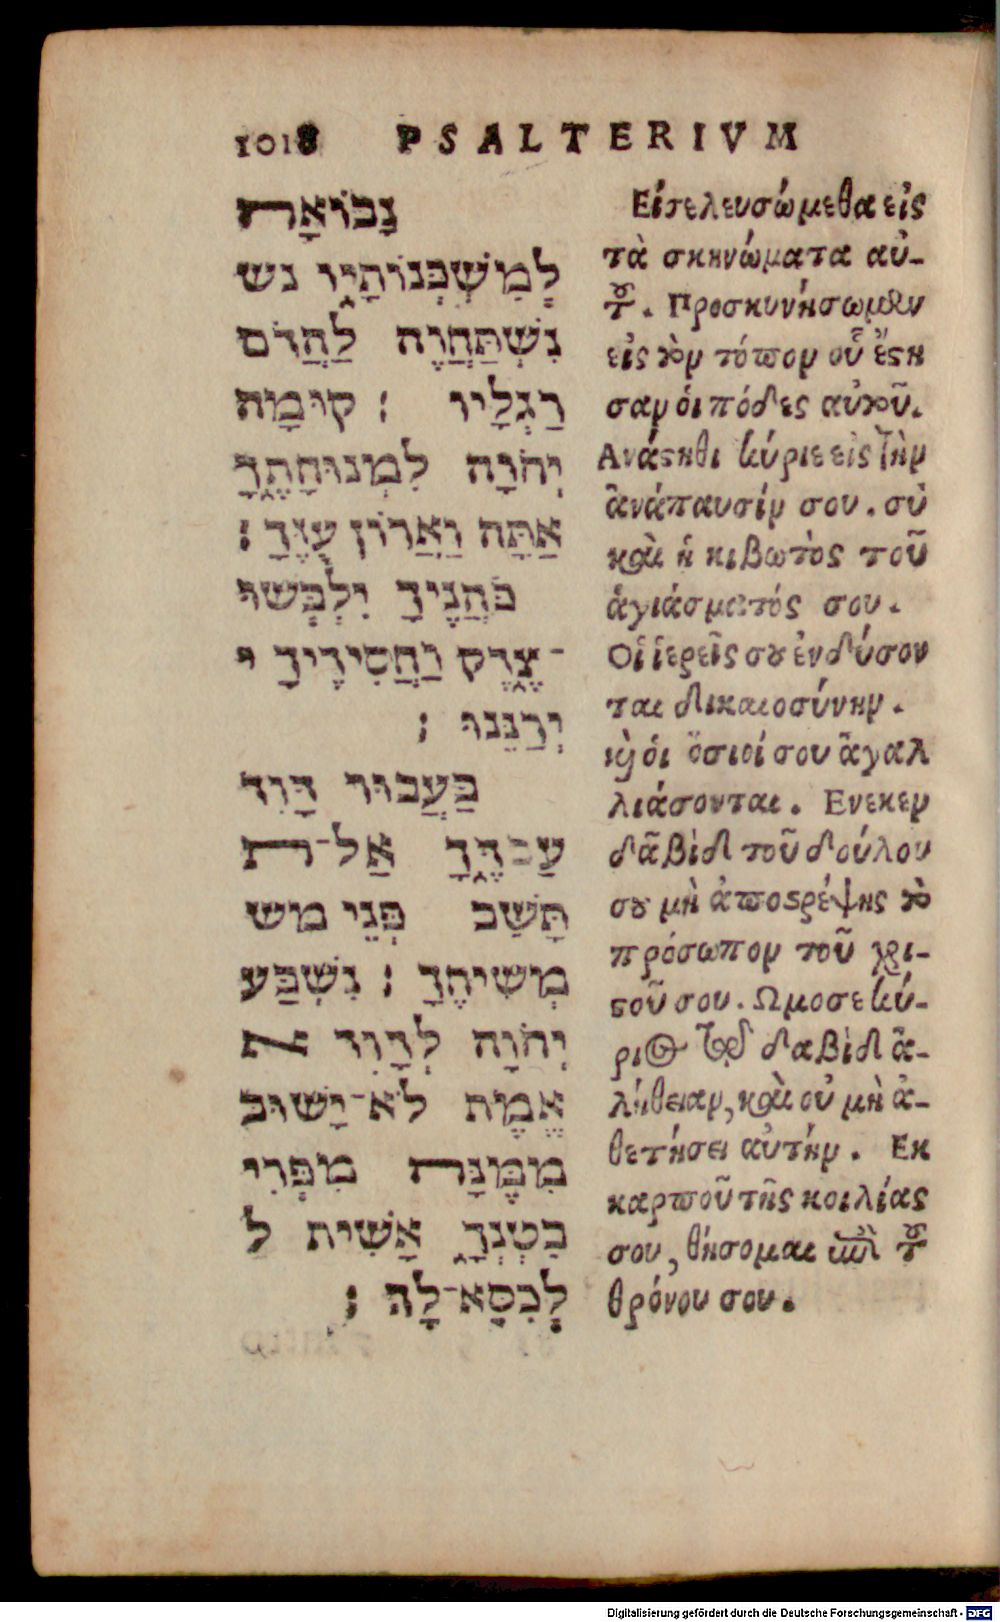 1018 PSALTERIVM
נָבוֹאָה
לְמִשְׁכְּנוֹתָיו נש
נִשְׁתַּחֲוֶה לַהֲדֹם
רַגְלָיו : קוּמָה
יְהֹוָה לִמְנוּחָתֶךָ
אַתָּה וַאֲרוֹן עֻזֶּךָ :
כֹּהֲנֶיךָ יִלְבְּשׁוּ
צֶדֶק וַחֲסִידֶיךָ י
יְרַנֵּנוּ :
בַּעֲבוּר דָּוִד
עַבְדֶּךָ אַל־ת
תָּשֵׁב פְּנֵי מש
מְשִׁיחֶךָ : נִשְׁבַּע
יְהֹוָה לְדָוִד א
אֱמֶת לֹא־יָשׁוּב
מִמֶּנָּה מִפְּרִי
בִטְנְךָ אָשִׁית ל
לְכִסֵּא־לָךְ :
Εἰσελευσώμεθα εἰς
τὰ σκηνώματα αὐ-
τοῦ. Προσκυνήσωμεν
εἰς τὸν τόπον οὗ ἔςη
σαν ὁι πόδες αὐτοῦ.
Ανάςηθι κύριε εἰς τὴν
ἀνάπαυσίν σου. σὺ
καὶ ἡ κιβωτὸς τοῦ
ἁγιάσματός σου.
Οἱ ἱερεῖς σου ἐνδύσον
ται δικαιοσύνην.
καὶ ὁι ὅσιοί σου ἀγαλ
λιάσονται. Ενεκεν
δαβὶδ τοῦ δούλου
σου μὴ ἀποςρέψης τὸ
πρόσωπον τοῦ χρι-
ςοῦ σου. Ωμοσε κύ-
ριος τῷ δαβὶδ ἀ-
λήθειαν, καὶ οὐ μὴ ἀ-
θετήσει αὐτήν. Εκ
καρποῦ τῆς κοιλίας
σου, θήσομαι ἐπὶ τοῦ
θρόνου σου.
Digitalisierung gefördert durch die Deutsche Forschungsgemeinschaft - DFG